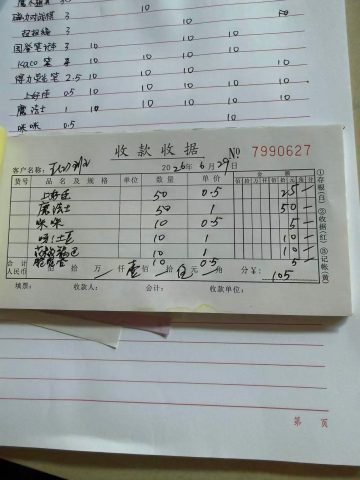 3
磁力对战棋 3 10 50
3 10
国誉笔记本 3 10 10
kaco笔 10 10
得力荧光笔 2.5 10 10 10
上好佳 0.5 10 10 10
魔法士 1 10 10 10
咪咪 0.5 10
收款收据 № 7990627
客户名称: 2026年6月29日
货号 品名及规格 单位 数量 单价 金额
佰 拾 万 仟 佰 拾 元 角 分
上好佳 50 0.5 25
魔法士 50 1 50
咪咪 10 0.5 5
10 1 10
10 1 10
10 0.5 5
合计人民币 佰 拾 万 仟 壹佰 拾 伍元 角 分 ¥: 105
填票: 收款人: 会计: 收款单位:
①存根(白) ②收据(红) ③记帐(黄)
第 页